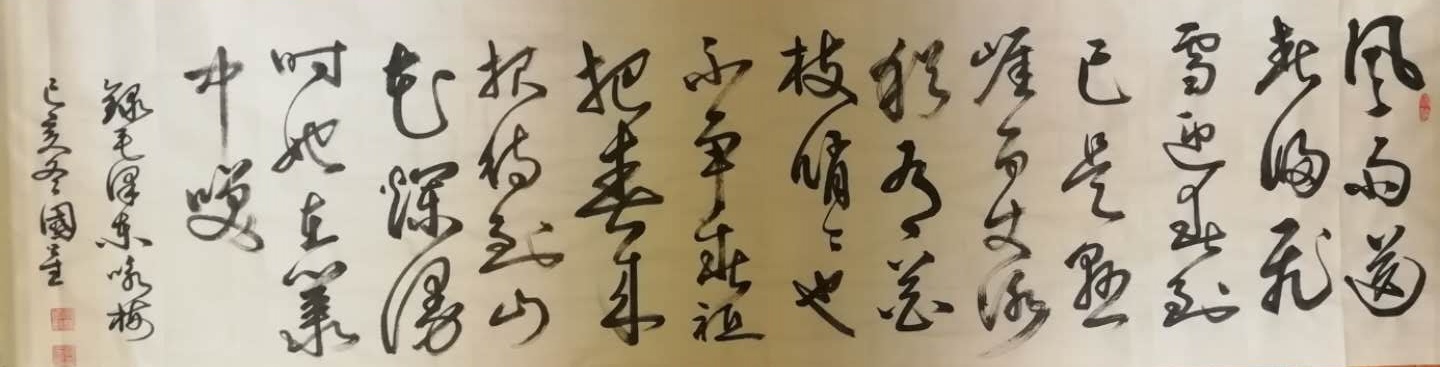 風雨送
春歸飛
雪迎春到
已是懸
崖百丈冰
猶有花
枝俏〻也
不爭春祗
把春來
报待到山
花爛漫
时她在叢
中咲
錄毛澤東咏梅
己亥冬國